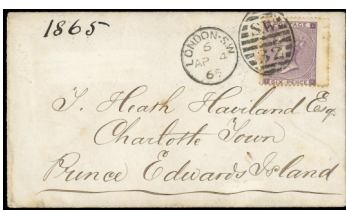 1865
LONDON·SW
6
AP 4
65
SW
SIX PENCE
T. Heath Haviland Esq.
Charlotte Town
Prince Edwards Island